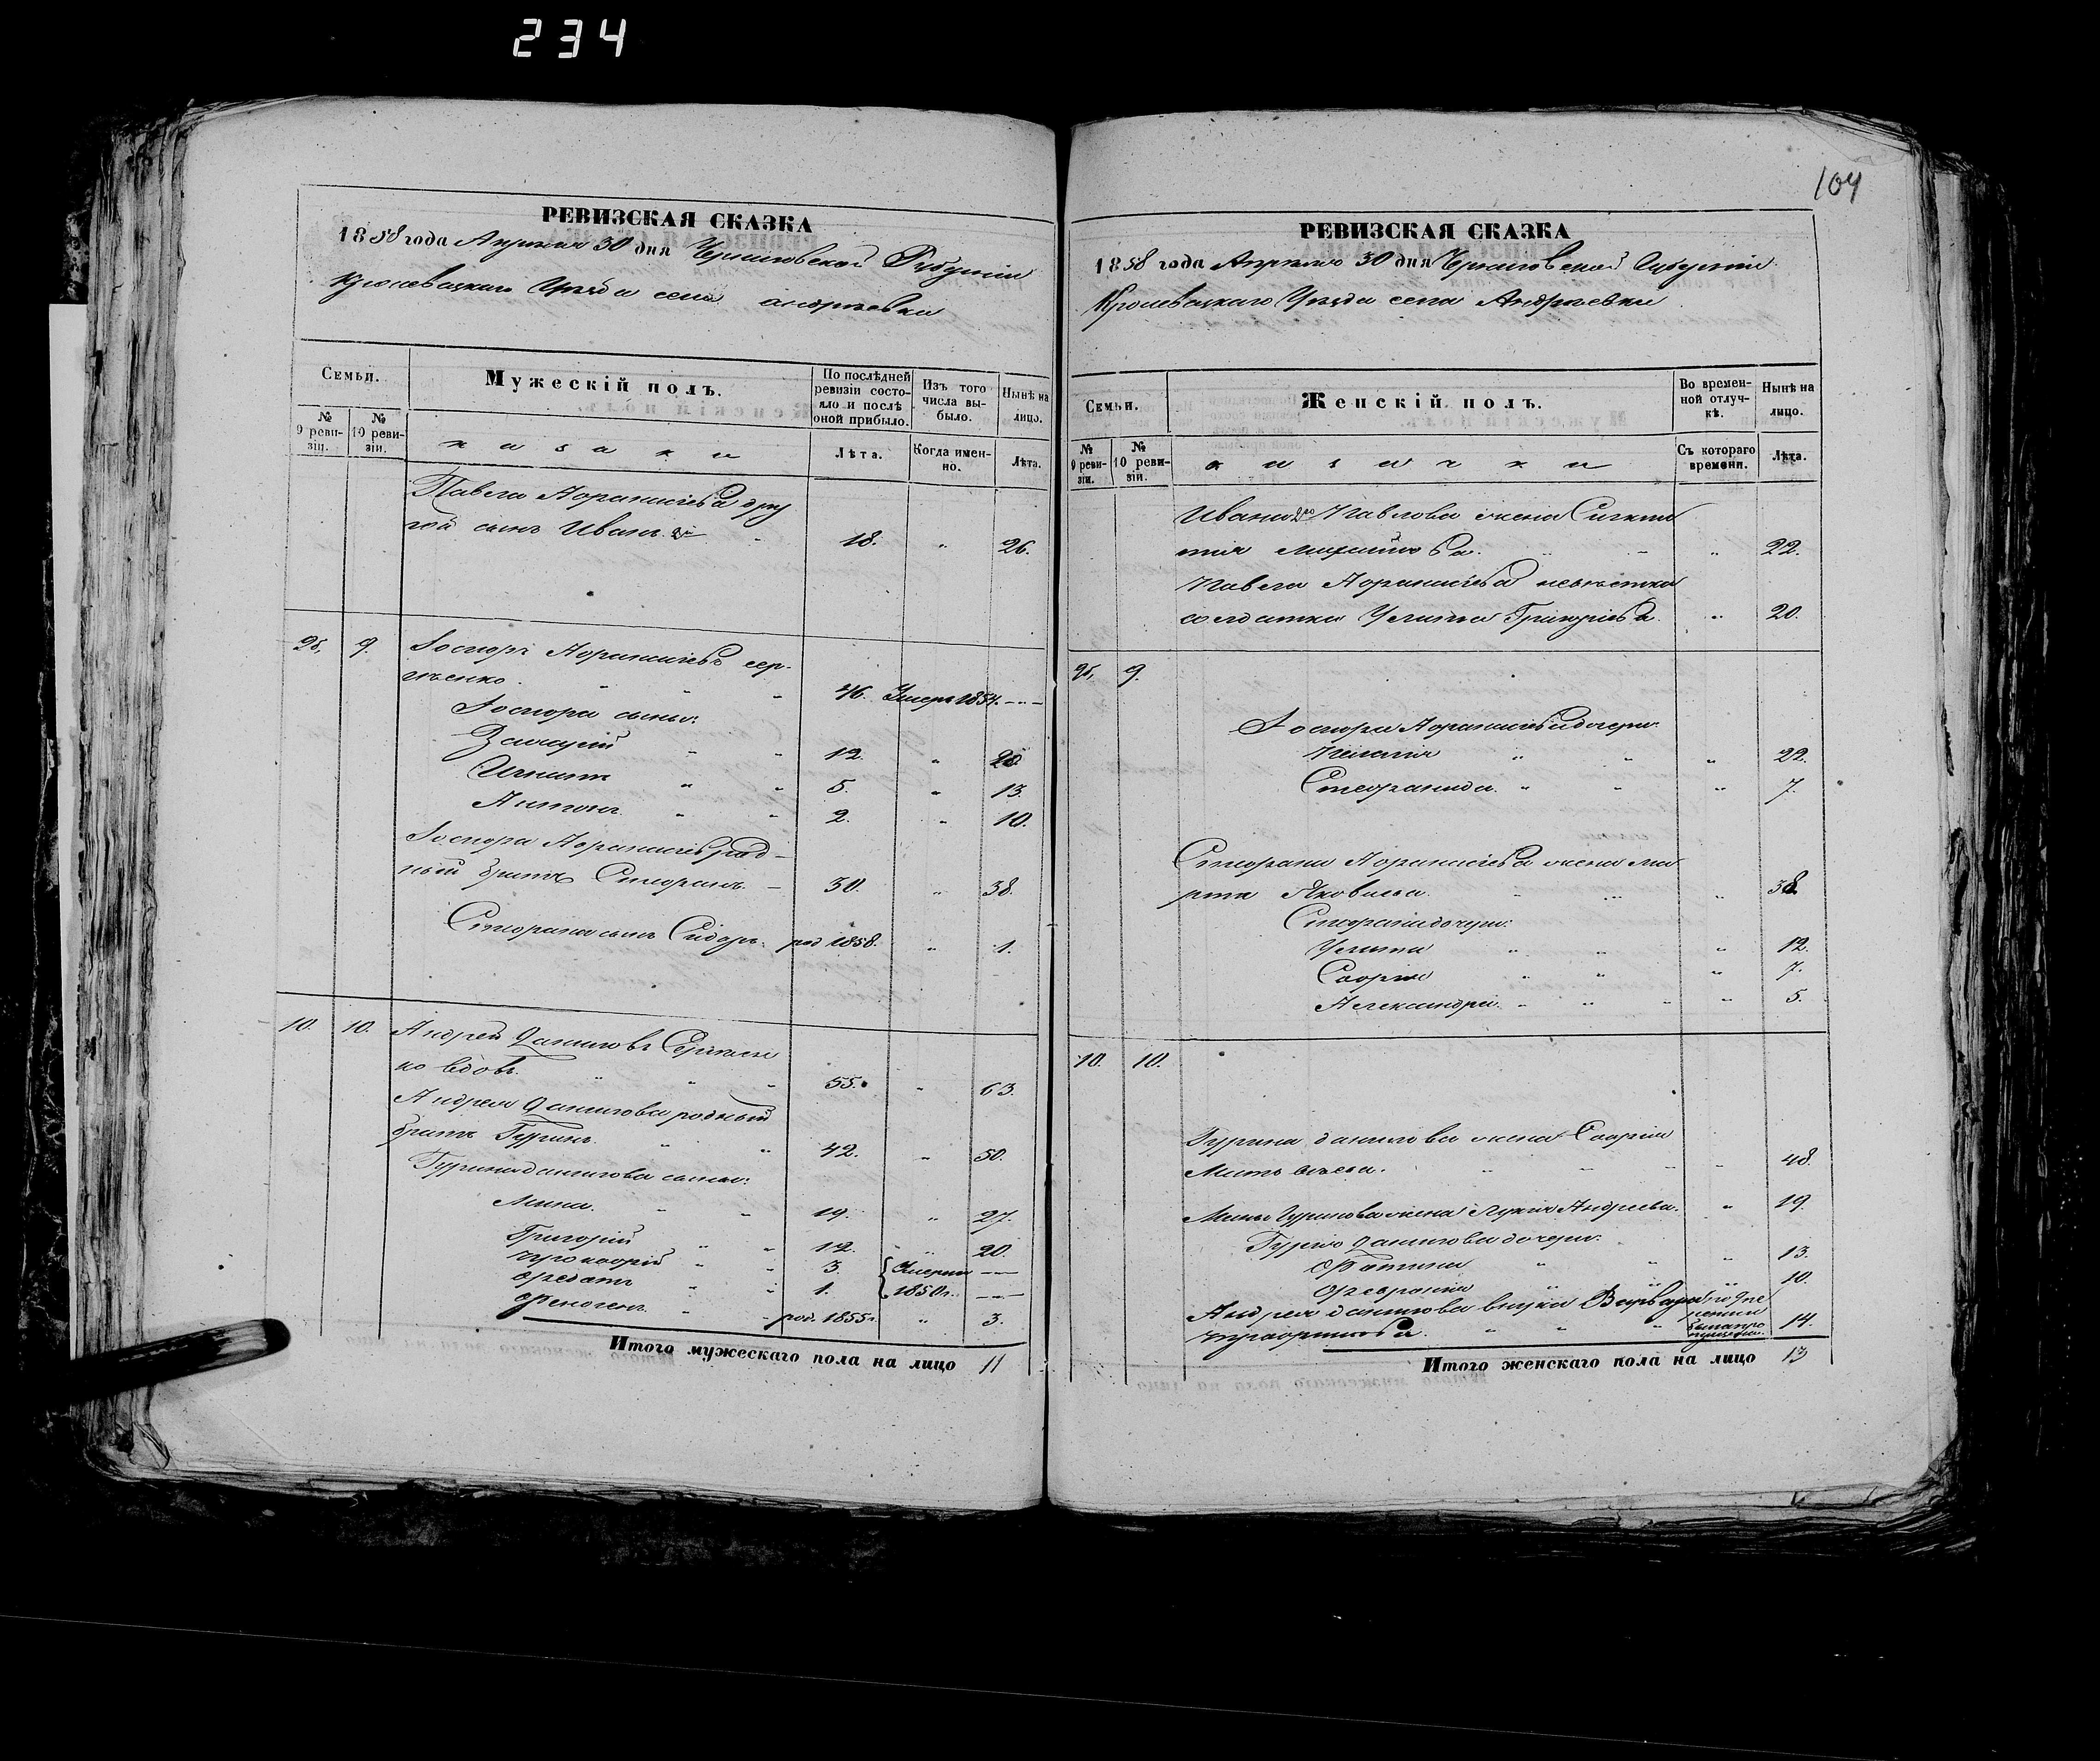 234
104
РЕВИЗСКАЯ СКАЗКА
1858 года Апреля 30 дня Черниговской Губернии
Кролевецкаго Уезда села Андреевки
Семьи.
Мужескій полъ.
По послѣдней ревизіи состояло и послѣ оной прибыло.
Изъ того числа выбыло.
Нынѣ на лицо.
№ 9 ревизіи.
№ 10 ревизіи.
казаки
Лѣта.
Когда именно.
Лѣта.
Павла Афанасiева дру
гой сынъ Иванъ 2й 18. " 26.
9. 9.
Афанасiевъ Сер-
гѣенко. 46. Умеръ 1854.
сыны:
Захарiй 12. " 20.
Игнатъ 5. " 13.
Антонъ 2. " 10.
Афанасiева род-
ный братъ Стефанъ 30. " 38.
Стефана сынъ Сидоръ. род 1858. " 1.
10. 10. Андрей Даниловъ Сергѣен
ко вдовъ. 55. " 63.
Андрея Данилова родный
братъ Гуринъ. 42. " 50.
Гурина Данилова сыны:
Мина. 19. " 27.
Григорiй 12. " 20.
Прокофiй 3. Умерли
1. 1850 г.
Феногенъ род. 1855 г. " 3.
Итого мужескаго пола на лицо 11
РЕВИЗСКАЯ СКАЗКА
1858 года Апреля 30 дня Черниговской Губернии
Кролевецкаго Уезда села Андреевки
Семьи.
Женскій полъ.
Во временной отлучкѣ.
Нынѣ на лицо.
№ 9 ревизіи.
№ 10 ревизіи.
казачки
Съ котораго времени.
Лѣта.
Ивана 2го Павлова жена
Михайлова. " 22.
Павла Афанасiева невестка
солдатка Улита Григорiева. " 20.
9. 9.
Афанасiева дочери:
Пелагiя " 22.
Стефанида. " 7.
Стефана Афанасiева жена Ма
рта Яковлева. " 38.
Стефана дочери:
Улита " 12.
Софiя " 7.
Александра. " 5.
10. 10.
Гурина Данилова жена Софiя
48.
Мины Гуринова жена Лукiя Андреева. " 19.
Гурiя Данилова дочери:
Фотина " 13.
Феврония " 10.
Андрея Данилова внука Варвара
14.
Итого женскаго пола на лицо 13